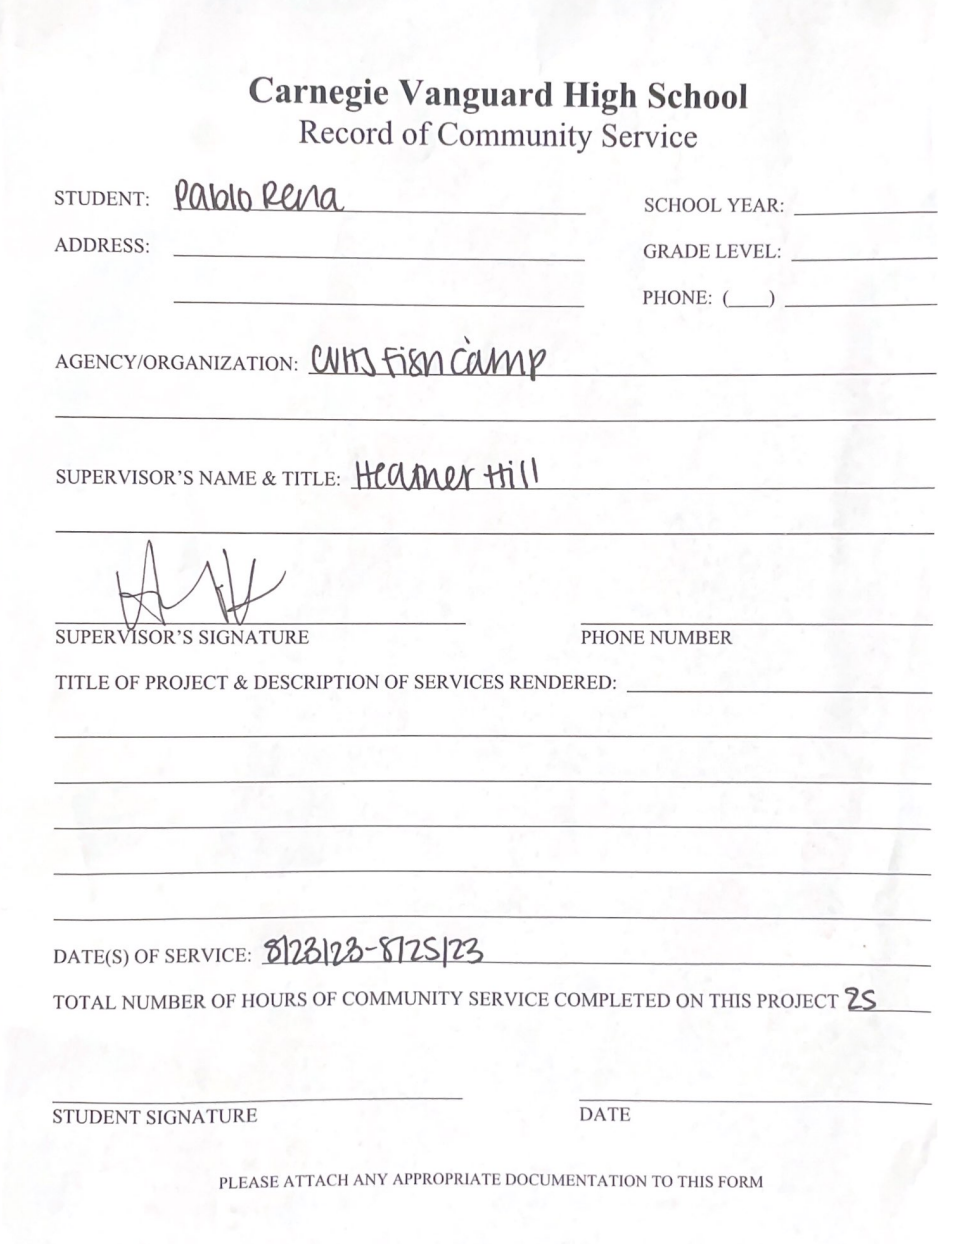 Carnegie Vanguard High School
Record of Community Service
STUDENT: Pablo Rena
SCHOOL YEAR:
ADDRESS:
GRADE LEVEL:
PHONE: (___)
AGENCY/ORGANIZATION: CVHS Fish Camp
SUPERVISOR'S NAME & TITLE: Heather Hill
SUPERVISOR'S SIGNATURE
PHONE NUMBER
TITLE OF PROJECT & DESCRIPTION OF SERVICES RENDERED:
DATE(S) OF SERVICE: 8/23/23-8/25/23
TOTAL NUMBER OF HOURS OF COMMUNITY SERVICE COMPLETED ON THIS PROJECT 25
STUDENT SIGNATURE
DATE
PLEASE ATTACH ANY APPROPRIATE DOCUMENTATION TO THIS FORM